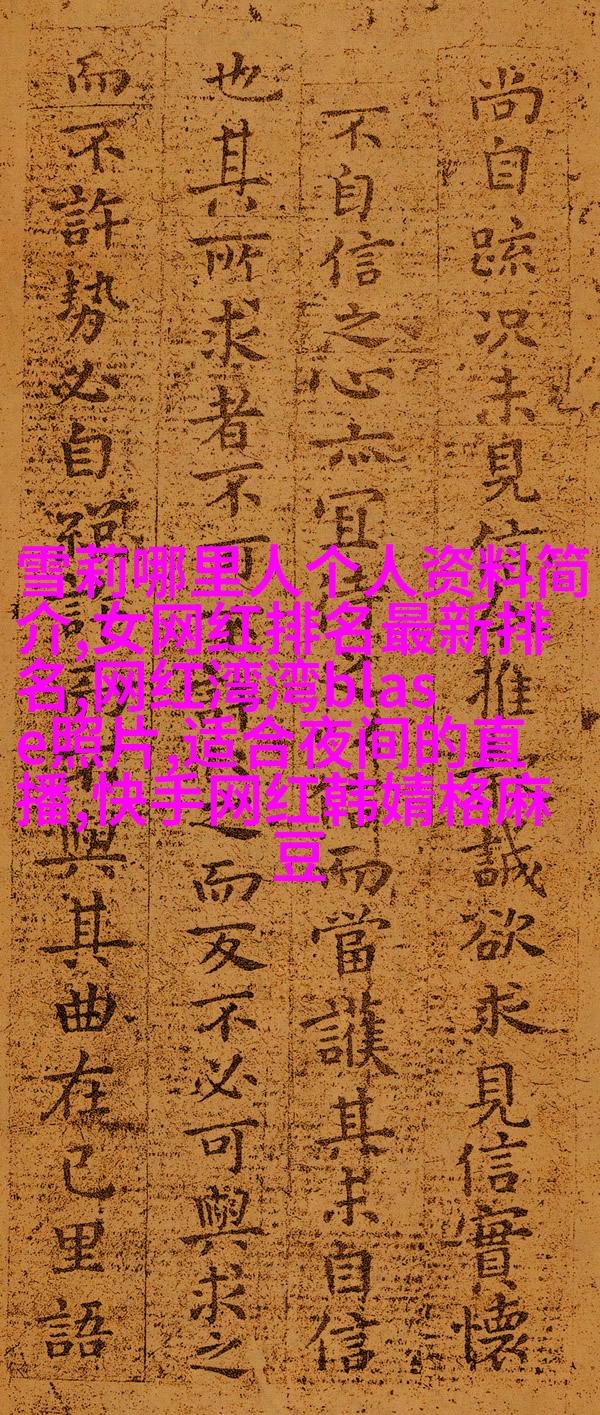 尚自踈况未見信推誠欲求見信實懷
不自信之心亦宜而當護其未自信
也其所求者不可之而反不必可與求之
而不許勢必自與其曲在己里語
雪莉哪里人个人资料简
介,女网红排名最新排
名,网红湾湾blas
e照片,适合夜间的直
播,快手网红韩婧格麻
豆